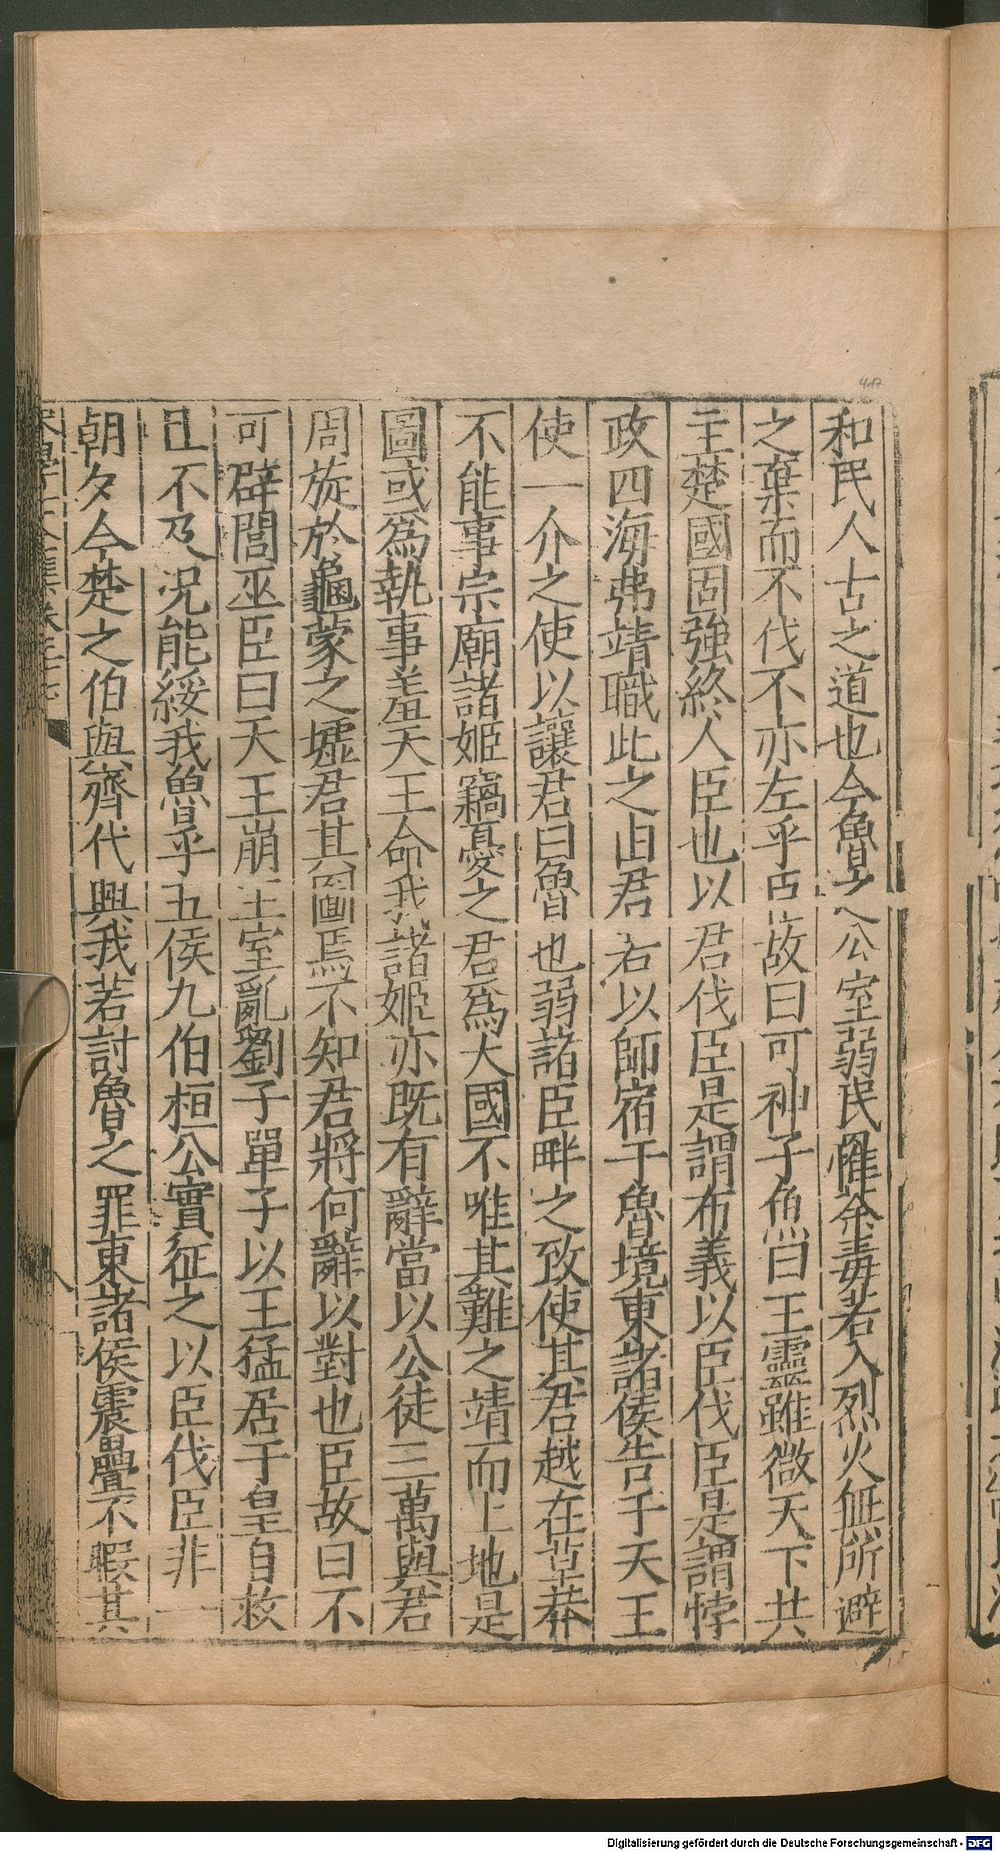 和民人古之道也今魯之公室弱民罹荼毒若入烈火無所避
之棄而不伐不亦左乎臣故曰可神子魚曰王靈雖微天下共
主楚國固強終人臣也以君伐臣是謂布義以臣伐臣是謂悖
政四海弗靖職此之由君若以師宿于魯境東諸侯告于天王
使一介之使以讓君曰魯也弱諸臣畔之致使其君越在草莽
不能事宗廟諸姬竊憂之君爲大國不唯其難之靖而土地是
圖或爲執事羞天王命我諸姬亦既有辭當以公徒三萬與君
周旋於龜蒙之墟君其圖焉不知君將何辭以對也臣故曰不
可辟閭巫臣曰天王崩王室亂劉子單子以王猛居于皇自救
且不及况能綏我魯乎五侯九伯桓公實征之以臣伐臣非一
朝夕今楚之伯與齊代興我若討魯之罪東諸侯震疊不暇其
417
Digitalisierung gefördert durch die Deutsche Forschungsgemeinschaft - DFG